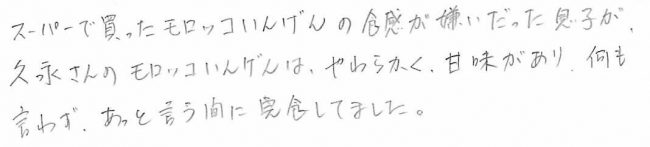 スーパーで買ったモロッコいんげんの食感が嫌いだった息子が、
久永さんのモロッコいんげんは、やわらかく、甘味があり、何も
言わず、あっと言う間に完食してました。